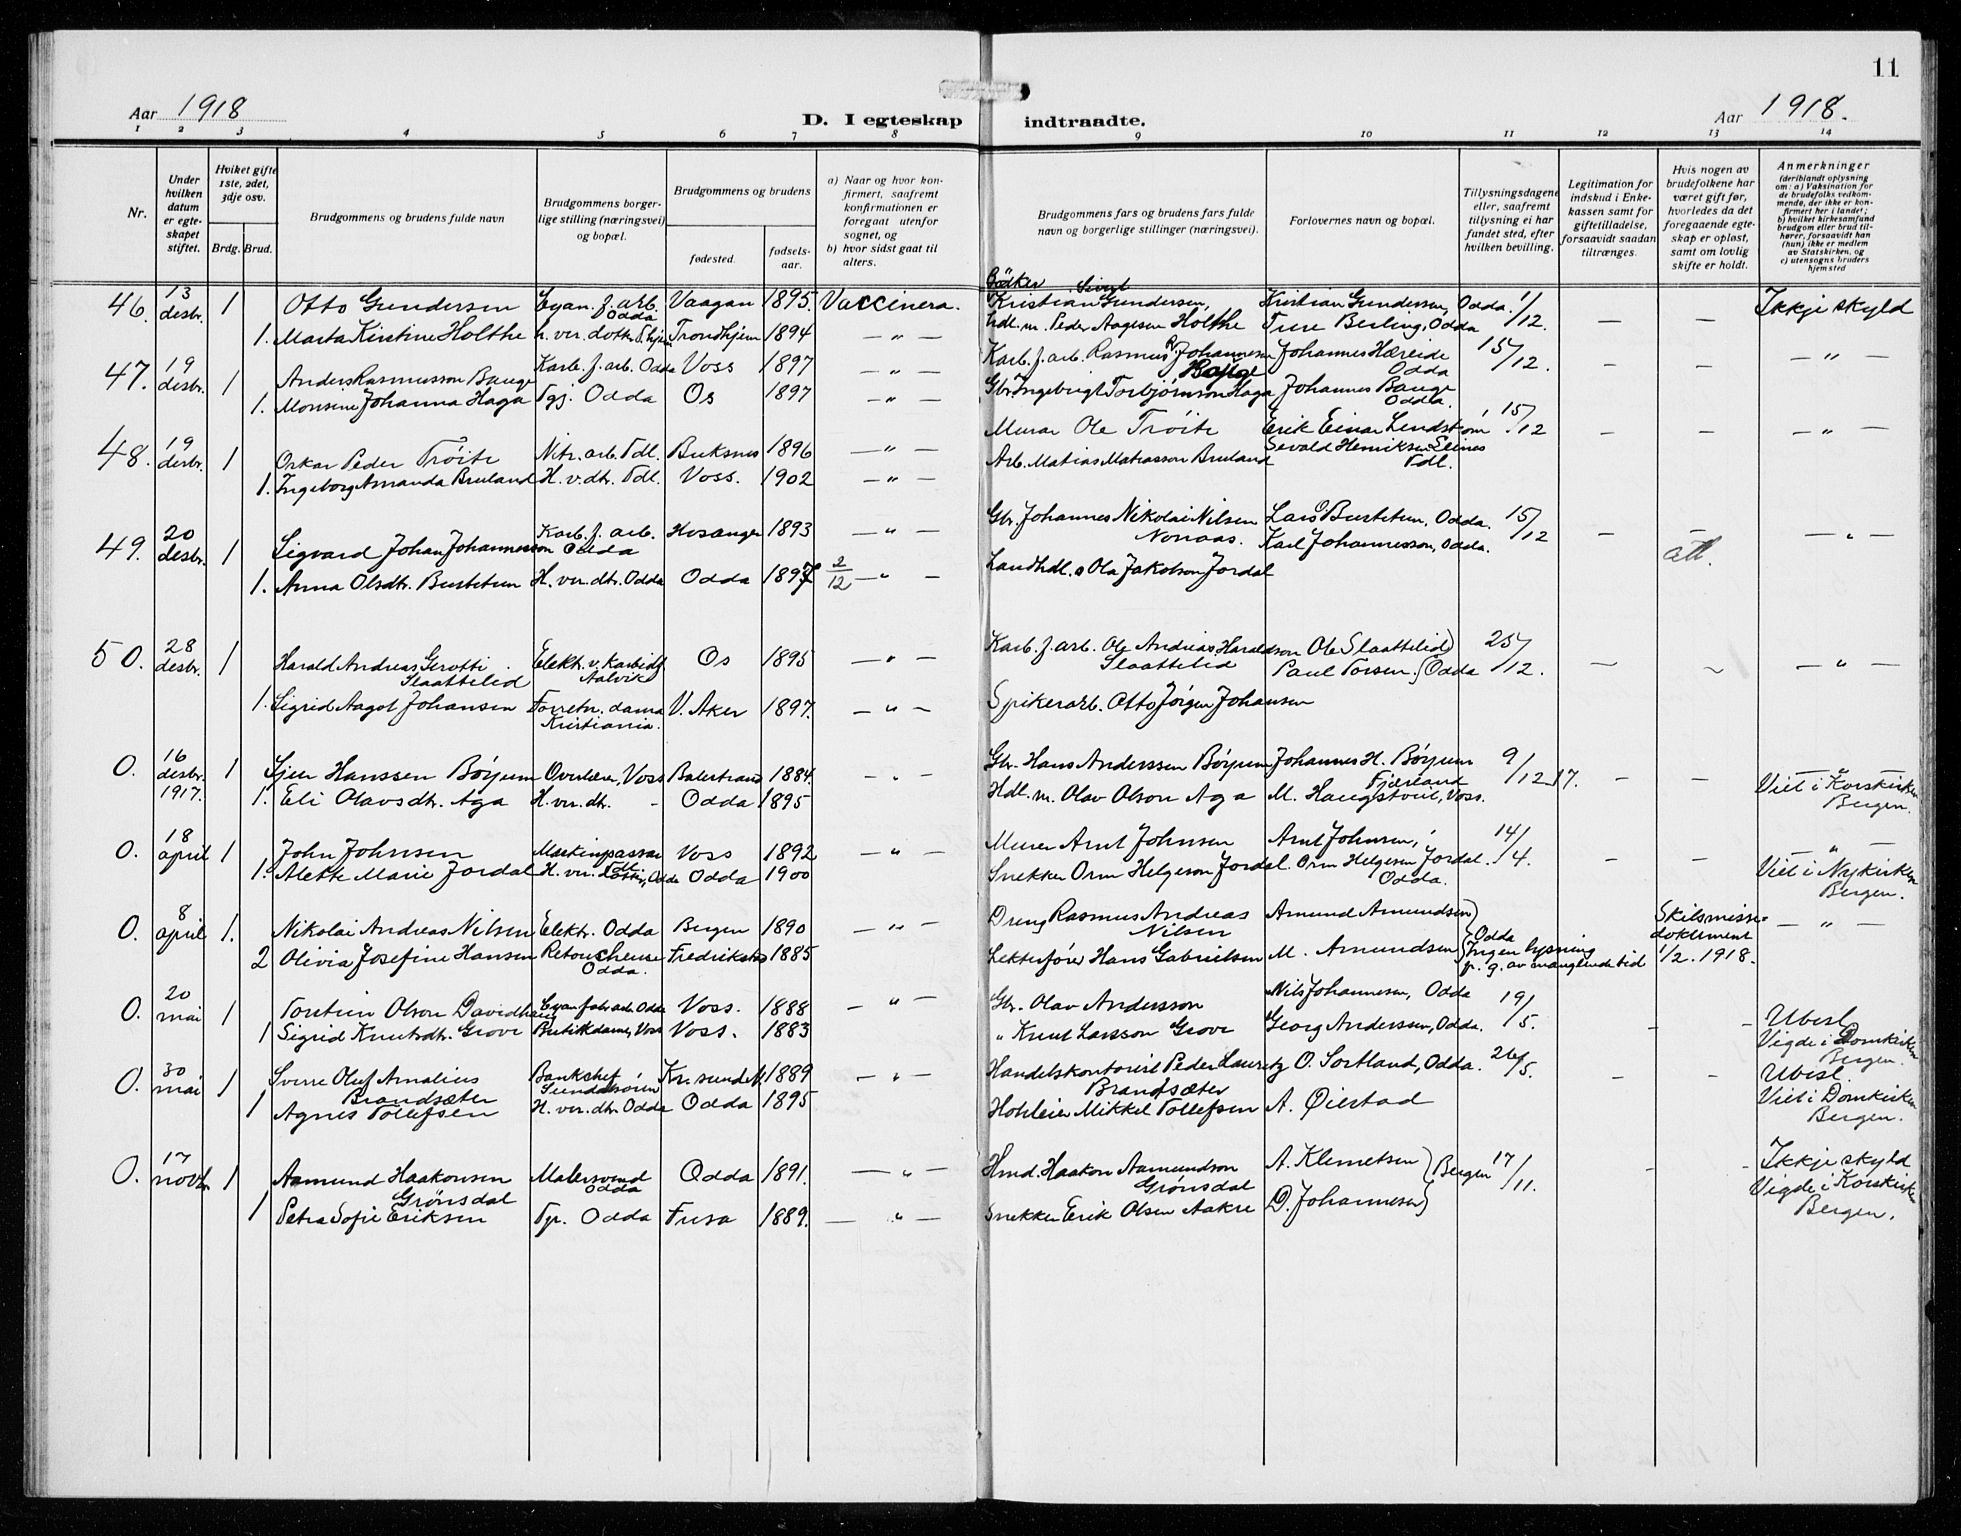 11
Aar 1918
D. I egteskap indtraadte.
Aar 1918.
1 2 3 4 5 6 7 8 9 10 11 12 13 14
Nr.
Under hvilken datum er egteskapet stiftet.
Hviket gifte 1ste, 2det, 3dje osv.
Brdg. Brud.
Brudgommens og brudens fulde navn
Brudgommens borgerlige stilling (næringsvei) og bopæl.
Brudgommens og brudens
fødested.
fødselsaar.
a) Naar og hvor konfirmert, saafremt konfirmationen er foregaat utenfor sognet, og
b) hvor sidst gaat til alters.
Brudgommens fars og brudens fars fulde navn og borgerlige stillinger (næringsvei).
Forlovernes navn og bopæl.
Tillysningsdagene eller, saafremt tillysning ei har fundet sted, efter hvilken bevilling.
Legitimation for indskud i Enkekassen samt for giftetilladelse, forsaavidt saadan tiltrænges.
Hvis nogen av brudefolkene har været gift før, hvorledes da det foregaaende egteskap er opløst, samt om lovlig skifte er holdt.
Anmerkninger
(deriblandt oplysning om: a) Vaksination for de brudefolks vedkommende, der ikke er konfirmert her i landet; b) hvilket kirkesamfund brudgom eller brud tilhører, forsaavidt han (hun) ikke er medlem av Statskirken, og c) utensogns bruders hjemsted
46. 13 desbr. 1 Otto Gundersen Cyan. f. arb. Odda Vaagan 1895 Vaccinera. Bödker Kristian Gundersen, Kristian Gundersen, Odda. 1/12. — — Ikkje skyld
1. Marta Kirstine Holthe h. ver. dotter Thjem Trondhjem 1894 — " — Hdl. m. Peder Aagesen Holthe Ture Berling, Odda
47. 19 desbr. 1 Anders Rasmusson Bauge Karb. f. arb. Odda Voss 1897 — " — Karb. f. arb. Rasmus Johannesen Bauge Johannes Hæreide Odda 15/12. — — — " —
1. Monsine Johanna Haga Tgj. Odda Os 1897 — " — Gbr. Ingebrigt Torbjørnson Haga Johannes Bauge Odda.
48. 19 desbr. 1 Oskar Peder Tröite Nitr. arb. Tdl. Buksnes 1896 — " — Murar Ole Tröite Erik Einar Lindström 15/12 — — — " —
1. Ingeborg Amanda Bruland H. v. dtr. Tdl. Voss. 1902 — " — Arb. Matias Matiasson Bruland Sevald Henriksen Tdl.
49. 20 desbr. 1 Sigvard Johan Johannesson Karb. f. arb. Odda Hosanger 1893 — " — Gbr. Johannes Nikolai Nilsen Lars O Bustetun, Odda. 15/12 — att. — " —
Karl Johannesson, Odda.
1. Anna Olsdtr. Bustetun H. ver. dtr. Odda Odda 2/12 — " — Landhdl. Ola Jakobson Jordal
50. 28 desbr. 1 Harald Andreas Slaattelid Elektr. v. Karbidf. Aalvik Os 1895 — " — Karb. f. arb. Ole Andreas Haraldson Slaattelid Ole Slaattelid Paul Torsen. Odda 25/12. — — — " —
1. Sigrid Aagot Johansen Forretn. dama Kristiania. V. Aker 1897. — " — Spikerarb. Otto Jörgen Johansen
0. 16 desbr. 1917. 1 Sjur Hanssen Böyum Overlærer, Voss Balestrand 1884. — " — Gbr. Hans Anderssen Böyum Johannes H. Böyum Fjærland 9/12 17. — — — " —
1. Eli Olavsdtr. Aga H. ver. dtr. - Odda 1895 Hdl. m. Olav Olson Aga M. Haugstveit, Voss. Viet i Korskirken Bergen.
0. 18 april 1 John Johnsen Maskinpassar Voss 1892 — " — Murer Arnt Johnsen Arnt Johnsen, 14/4. — — — " —
1. Alette Marie Jordal H. ver. dotter, Odda Odda 1900 Snekker Orm Helgeson Jordal Orm Helgesen Jordal. Odda. Viet i Nykirken Bergen.
0. 8 april 1. Nikolai Andreas Nilsen Elektr. Odda Bergen 1890 — " — Dreng Rasmus Andreas Nilsen Amund Amundsen Odda Skilsmissedokument 1/2. 1918. — " —
2 Olivia Josefine Hansen Retoucheuse Odda. Fredrikstad 1885 Lekterfører Hans Gabrielsen M. Amundsen Ingen lysning p. g. av manglende tid
0. 20 mai 1 Torstein Olson Davidhaug Cyanfabr. arb. Odda Voss. 1888 — " — Gbr. Olav Andersson Nils Johannesen, Odda 19/5. — — Ubesl.
1 Sigrid Knutsdtr. Grove Butikdame, Voss Voss. 1883 " Knut Larsson Grove Georg Anderssen, Odda. Vigde i Domkirken Bergen.
0. 30 mai 1 Sverre Oluf Amalius Brandsæter Bankchef Sunndalsören Kr. sund N. 1889 — " — Handelskontorist Peder Lauritz Brandsæter O. Sortland, Odda. 26/5. — — Ubesl.
1 Agnes Tollefsen H. ver. dtr. Odda Odda 1895 Hoteleier Mikkel Tollefsen A. Øiestad Viet i Domkirken Bergen.
0. 17 novbr. 1 Aamund Haakonsen Grönsdal Malersvend Odda Odda 1891. — " — Hmd. Haakon Aamundson Grönsdal A. Klemetsen Bergen 17/11. — — Ikkje skyld
1 Petra Sofie Eriksen Tp. Odda Fusa 1889. — " — Snekker Erik Olsen Aakre D. Johannesen Vigde i Korskirke Bergen.